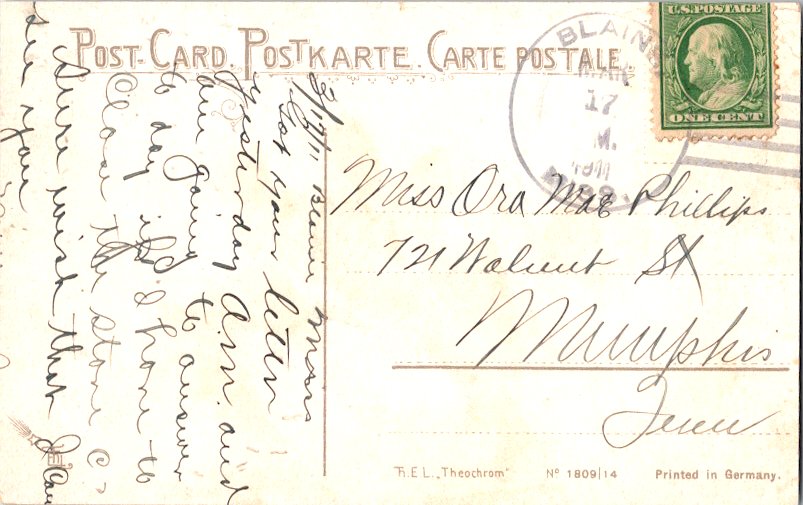 POST-CARD. POSTKARTE. CARTE POSTALE.
U.S. POSTAGE
ONE CENT
BLAINE
MAR
17
M.
MISS.
3/17/11 Blaine Miss
Got your letter
yesterday A.M. and
am going to answer
to day if I have to
Close the store
Sure wish that I Could
see you
Miss Ora Mae Phillips
721 Walnut St
Memphis
Tenn
T.S.E.L. „Theochrom"
No 1809/14
Printed in Germany.